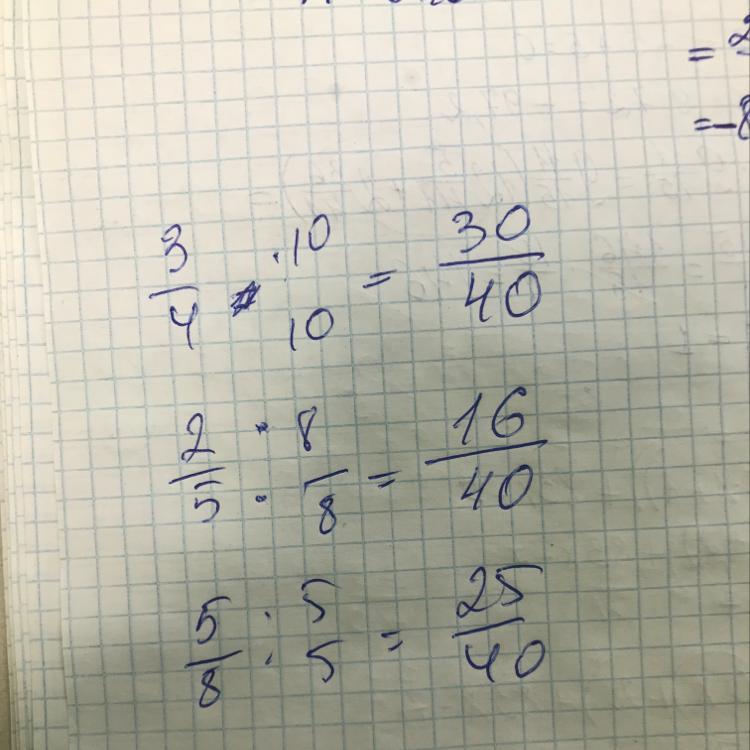 = 2
= -8
3/4 · 10/10 = 30/40
2/5 · 8/8 = 16/40
5/8 · 5/5 = 25/40